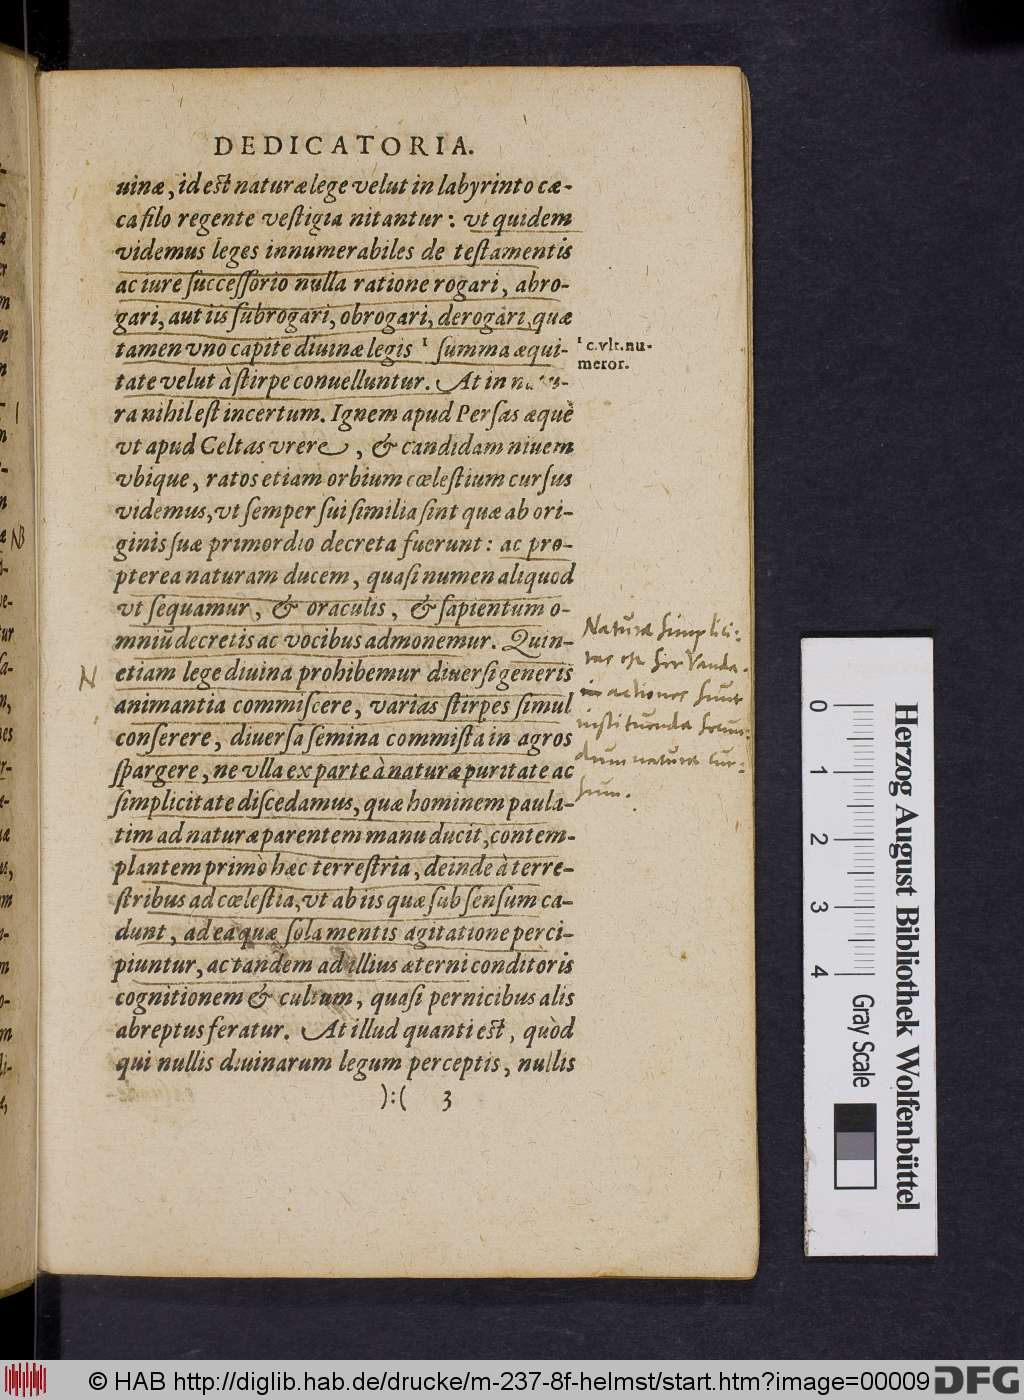 DEDICATORIA.
uinæ, id est naturæ lege velut in labyrinto cæ-
ca filo regente vestigia nitantur: vt quidem
videmus leges innumerabiles de testamentis
ac iure successorio nulla ratione rogari, abro-
gari, aut iis subrogari, obrogari, derogari, quæ
tamen vno capite diuinæ legis ¹ summa æqui-
¹ c.vlt.nu-
meror.
tate velut à stirpe conuelluntur. At in natu-
ra nihil est incertum. Ignem apud Persas æquè
vt apud Celtas vrere, & candidam niuem
vbique, ratos etiam orbium cœlestium cursus
videmus, vt semper sui similia sint quæ ab ori-
ginis suæ primordio decreta fuerunt: ac pro-
pterea naturam ducem, quasi numen aliquod
vt sequamur, & oraculis, & sapientum o-
mniū decretis ac vocibus admonemur. Quin-
etiam lege diuina prohibemur diuersi generis
animantia commiscere, varias stirpes simul
conserere, diuersa semina commista in agros
spargere, ne vlla ex parte à naturæ puritate ac
simplicitate discedamus, quæ hominem paula-
tim ad naturæ parentem manu ducit, contem-
plantem primò hæc terrestria, deinde à terre-
stribus ad cœlestia, vt ab iis quæ sub sensum ca-
dunt, ad ea quæ sola mentis agitatione perci-
piuntur, ac tandem ad illius æterni conditoris
cognitionem & cultum, quasi pernicibus alis
abreptus feratur. At illud quanti est, quòd
qui nullis diuinarum legum perceptis, nullis
):( 3
N
NB
Natura simplici-
tas est servanda.
actiones sunt
instituenda secun-
dum natura cur-
sum.
0 1 2 3 4
Gray Scale
Herzog August Bibliothek Wolfenbüttel
© HAB http://diglib.hab.de/drucke/m-237-8f-helmst/start.htm?image=00009
DFG